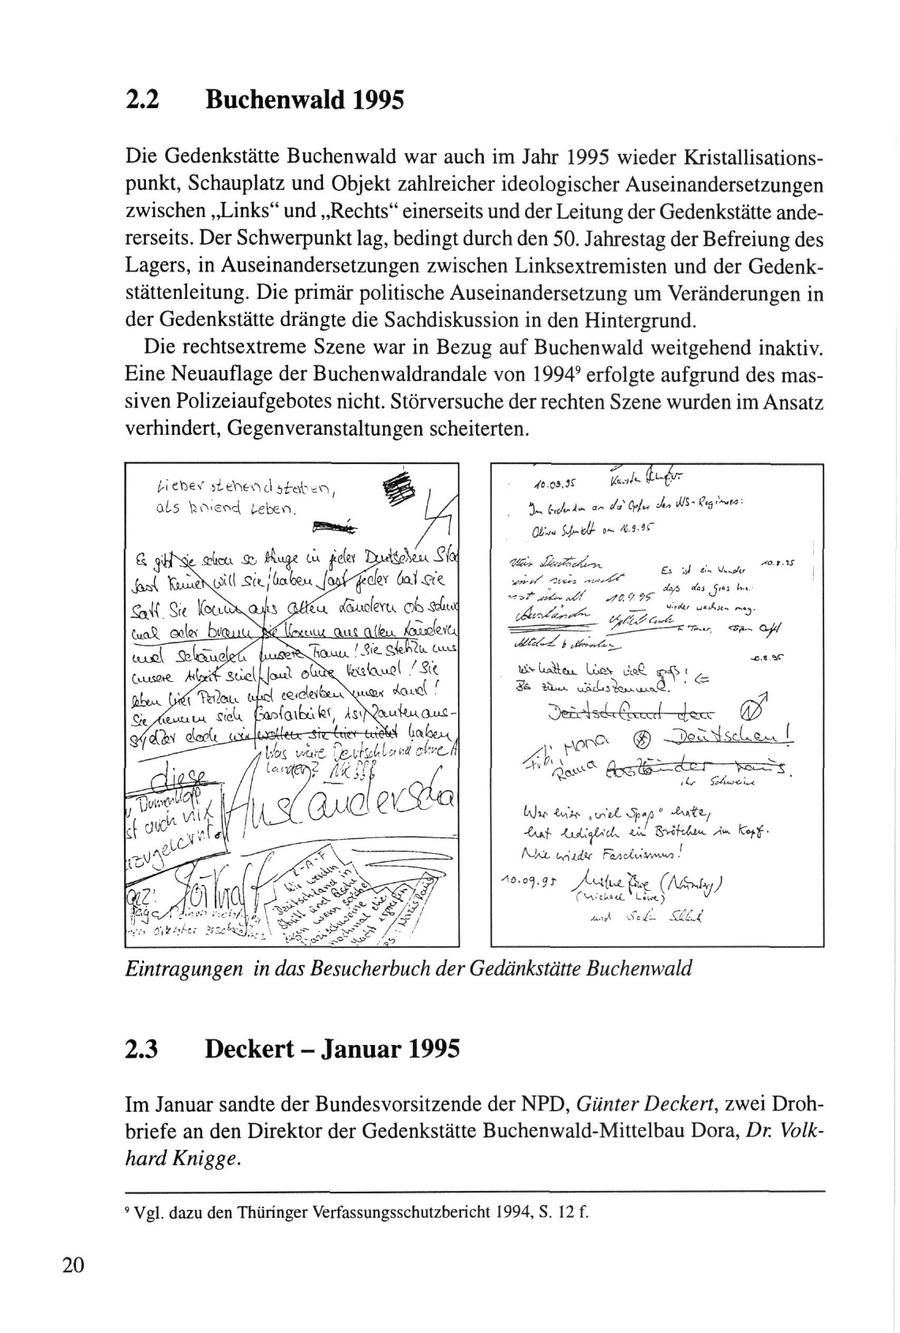 2.2 Buchenwald 1995
Die Gedenkstätte Buchenwald war auch im Jahr 1995 wieder Kristallisations-
punkt, Schauplatz und Objekt zahlreicher ideologischer Auseinandersetzungen
zwischen „Links“ und „Rechts“ einerseits und der Leitung der Gedenkstätte ande-
rerseits. Der Schwerpunkt lag, bedingt durch den 50. Jahrestag der Befreiung des
Lagers, in Auseinandersetzungen zwischen Linksextremisten und der Gedenk-
stättenleitung. Die primär politische Auseinandersetzung um Veränderungen in
der Gedenkstätte drängte die Sachdiskussion in den Hintergrund.
Die rechtsextreme Szene war in Bezug auf Buchenwald weitgehend inaktiv.
Eine Neuauflage der Buchenwaldrandale von 1994⁹ erfolgte aufgrund des mas-
siven Polizeiaufgebotes nicht. Störversuche der rechten Szene wurden im Ansatz
verhindert, Gegenveranstaltungen scheiterten.
Lieber stehend sterben,
als kniend Leben.
Es gibt sie schon so in jeder Deutschen
fast Keiner will sie haben, fast jeder hat sie
Satt. Sie Komm aus allen Ländern ob
oder braun sie Komm aus allen Ländern
und Schänden unsere Fraun! Sie Stehln uns
unsere Arbeit sind faul ohne Verstand! Sie
leben hier Perlon und verderben unser Land!
Sie nennen sich Gastarbeiter, Asylanten aus-
doch wir wollen sie hier nicht haben
Was wäre Deutschland ohne
diese
ist auch nix
10.09.95
Im Gedenken an die Opfer des NS-Regimes:
Oliver Schmidt am 10.9.95
Es ist ein Wunder
daß das Gras hier
wieder wachsen mag.
10.9.95
Wir hatten hier viel Spaß!
Bis zum nächstenmal.
Deutschland den
Deutschen!
Ausländer raus.
ihr Schweine
Wer hier „viel Spaß“ hatte,
hat lediglich ein Brötchen im Kopf.
Nie wieder Faschismus!
10.09.95
(Nürnberg)
(Michael Löwe)
und
Eintragungen in das Besucherbuch der Gedänkstätte Buchenwald
2.3 Deckert – Januar 1995
Im Januar sandte der Bundesvorsitzende der NPD, Günter Deckert, zwei Droh-
briefe an den Direktor der Gedenkstätte Buchenwald-Mittelbau Dora, Dr. Volk-
hard Knigge.
⁹ Vgl. dazu den Thüringer Verfassungsschutzbericht 1994, S. 12 f.
20